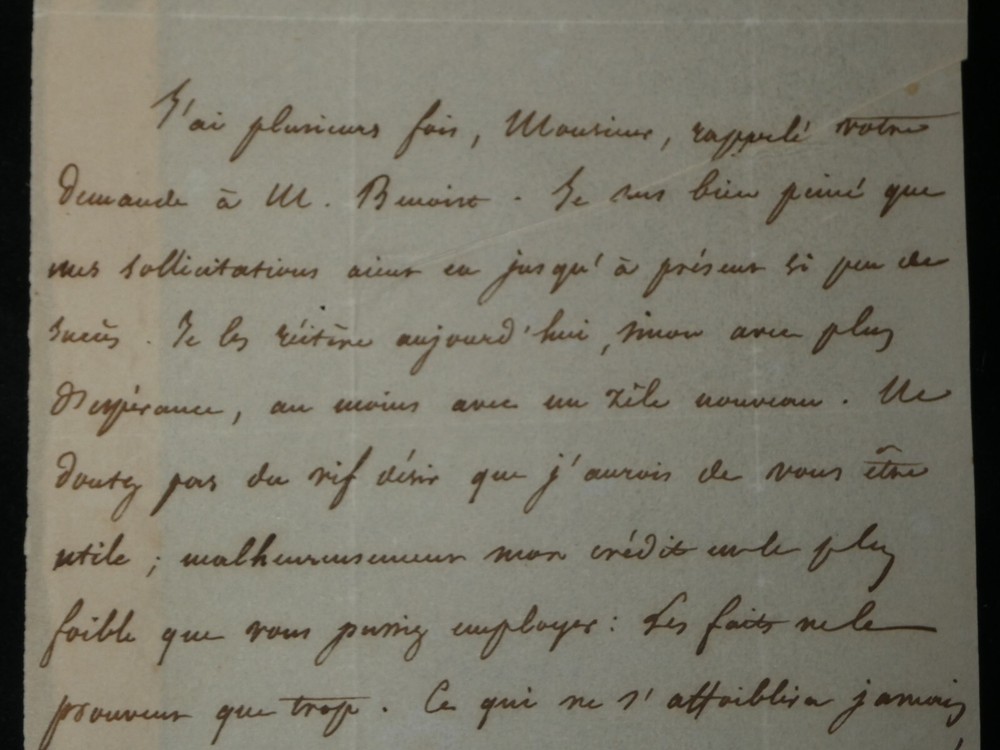 J'ai plusieurs fois, Monsieur, rappelé votre
demande à M. Benoist. Je suis bien peiné que
mes sollicitations aient eu jusqu'à présent si peu de
succès. Je les réitère aujourd'hui, sinon avec plus
d'espérance, au moins avec un zèle nouveau. Ne
doutez pas du vif désir que j'aurois de vous être
utile ; malheureusement mon crédit est le plus
foible que vous puissiez employer : Les faits ne le
prouvent que trop. Ce qui ne s'affoiblira jamais,